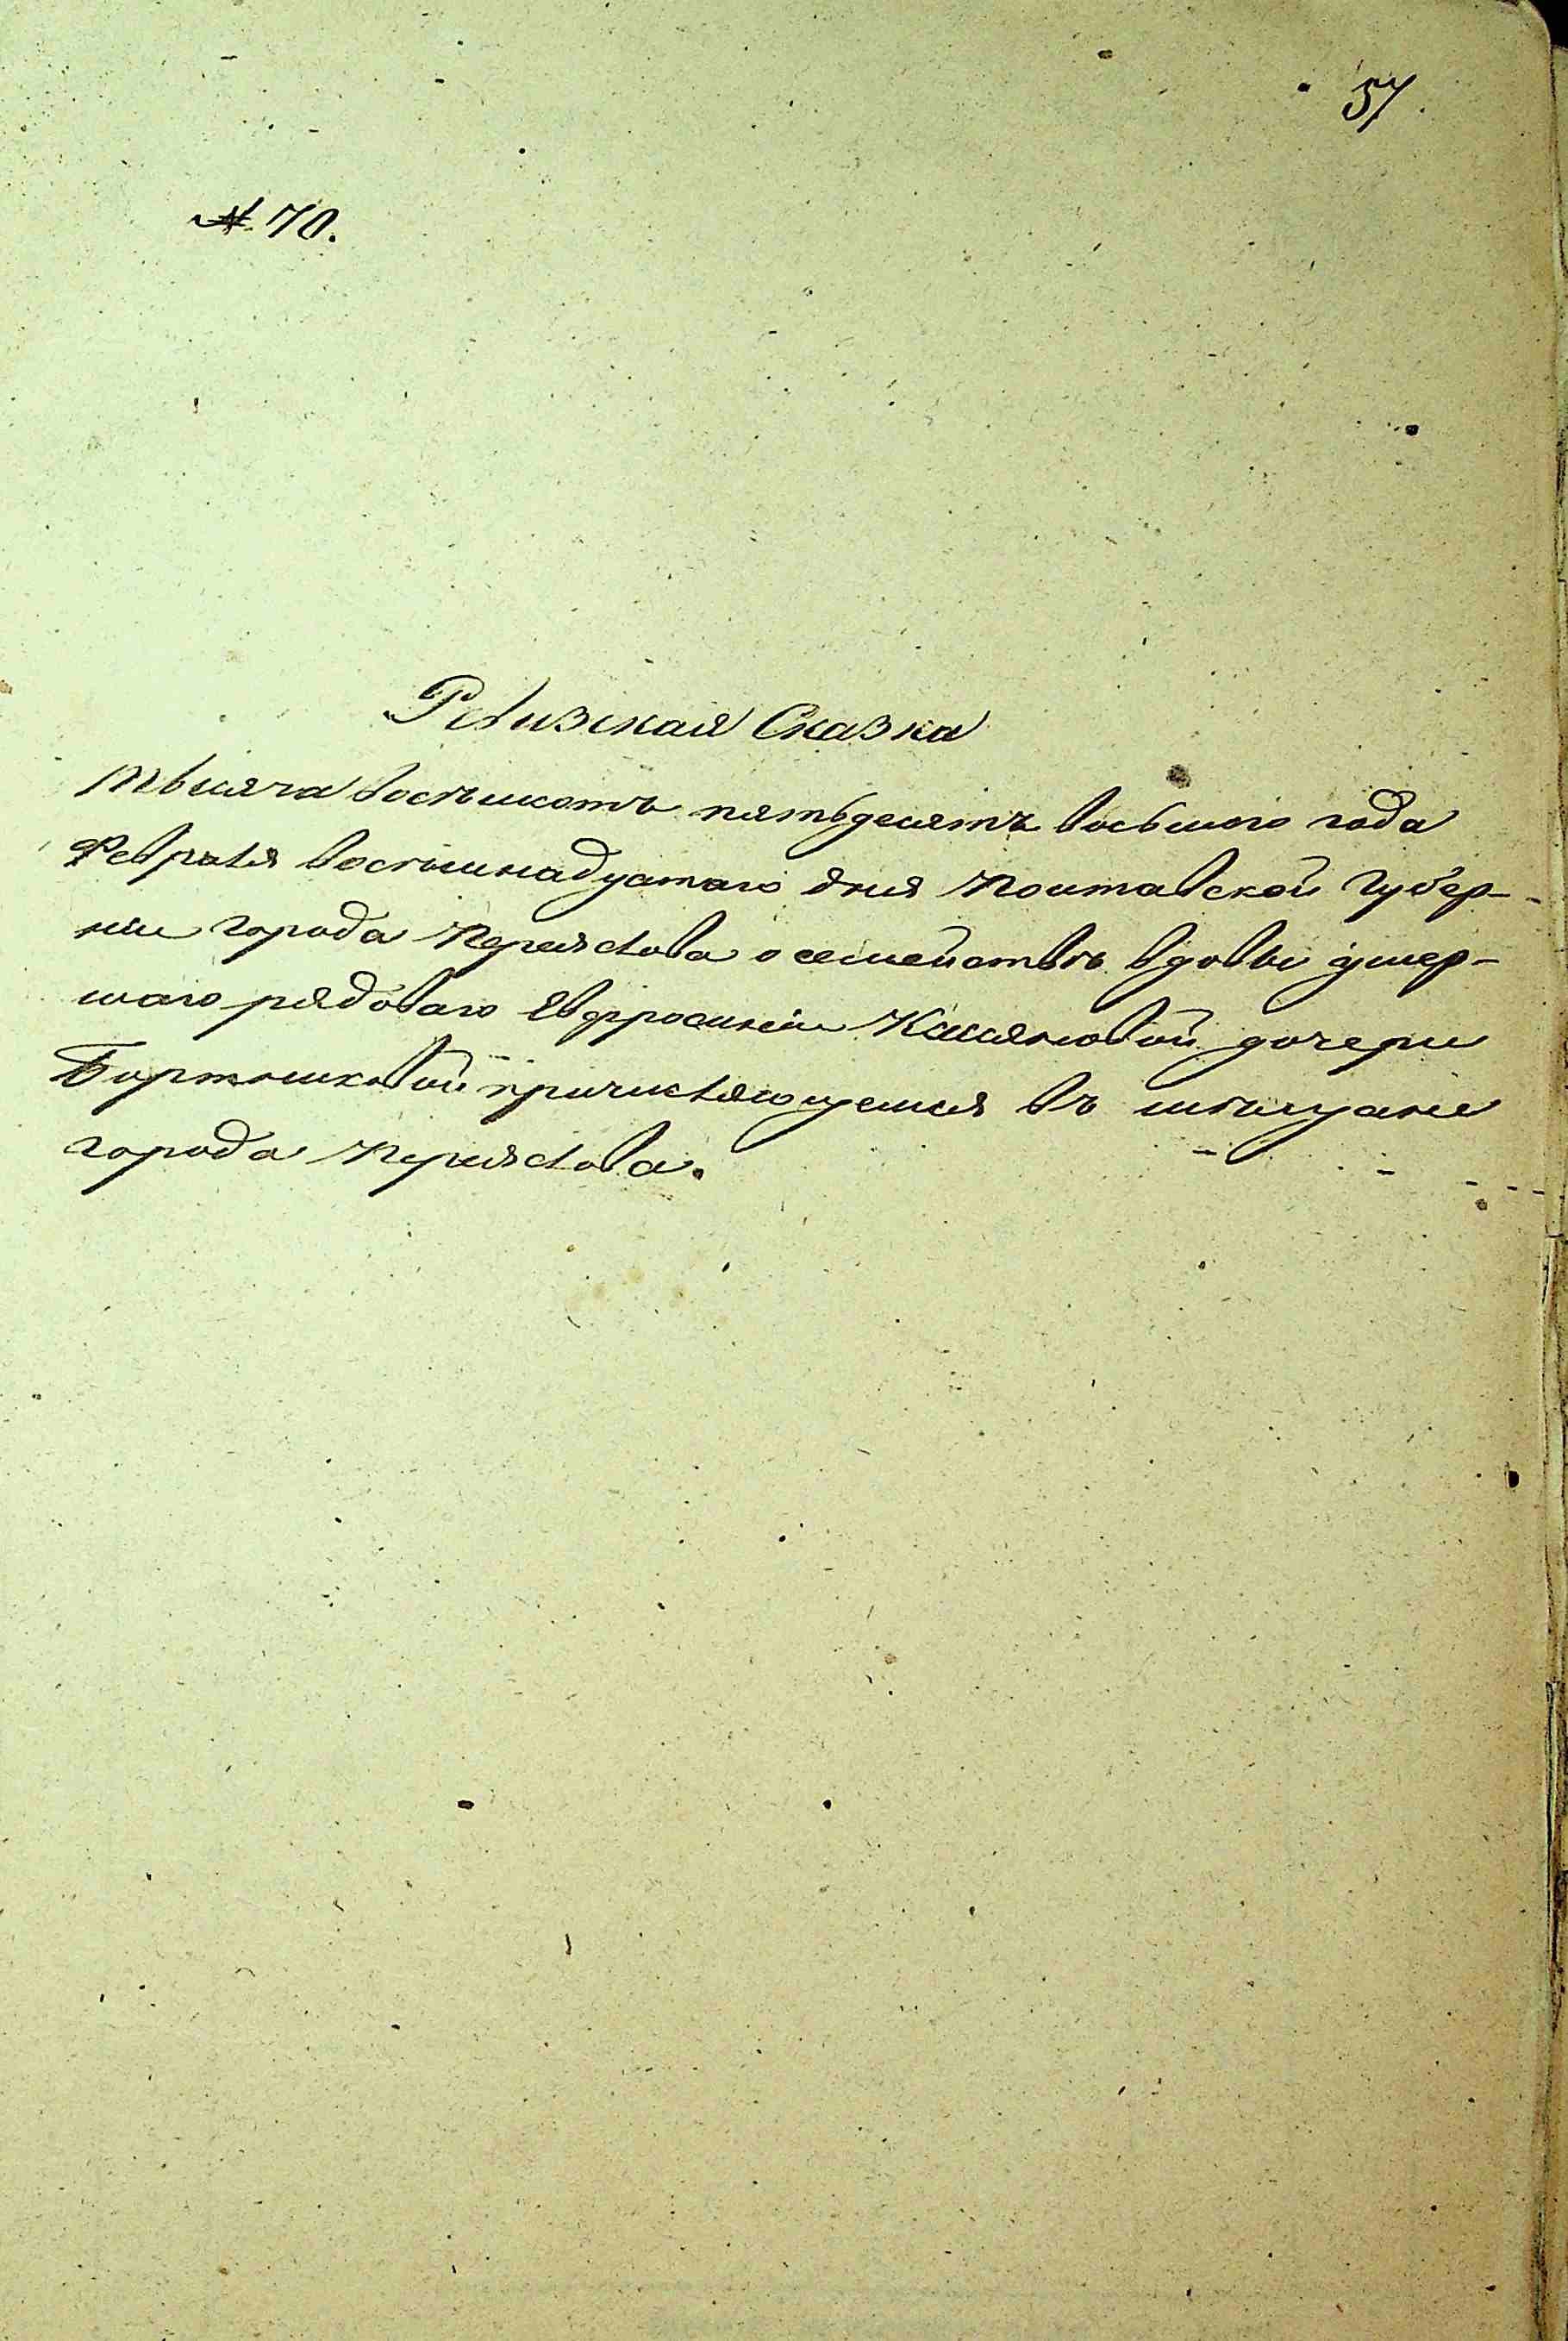 57
№ 70.
Ревизская Сказка
тысяча восѣмсотъ пятьдесятъ восьмого года
Февраля восѣмнадцатаго дня Полтавской Губер-
ніи города Переяслова о семействѣ вдовы умер-
шаго рядоваго Евфросиніи Касяновой дочери
причисляющемся въ мѣщане
города Переяслова.